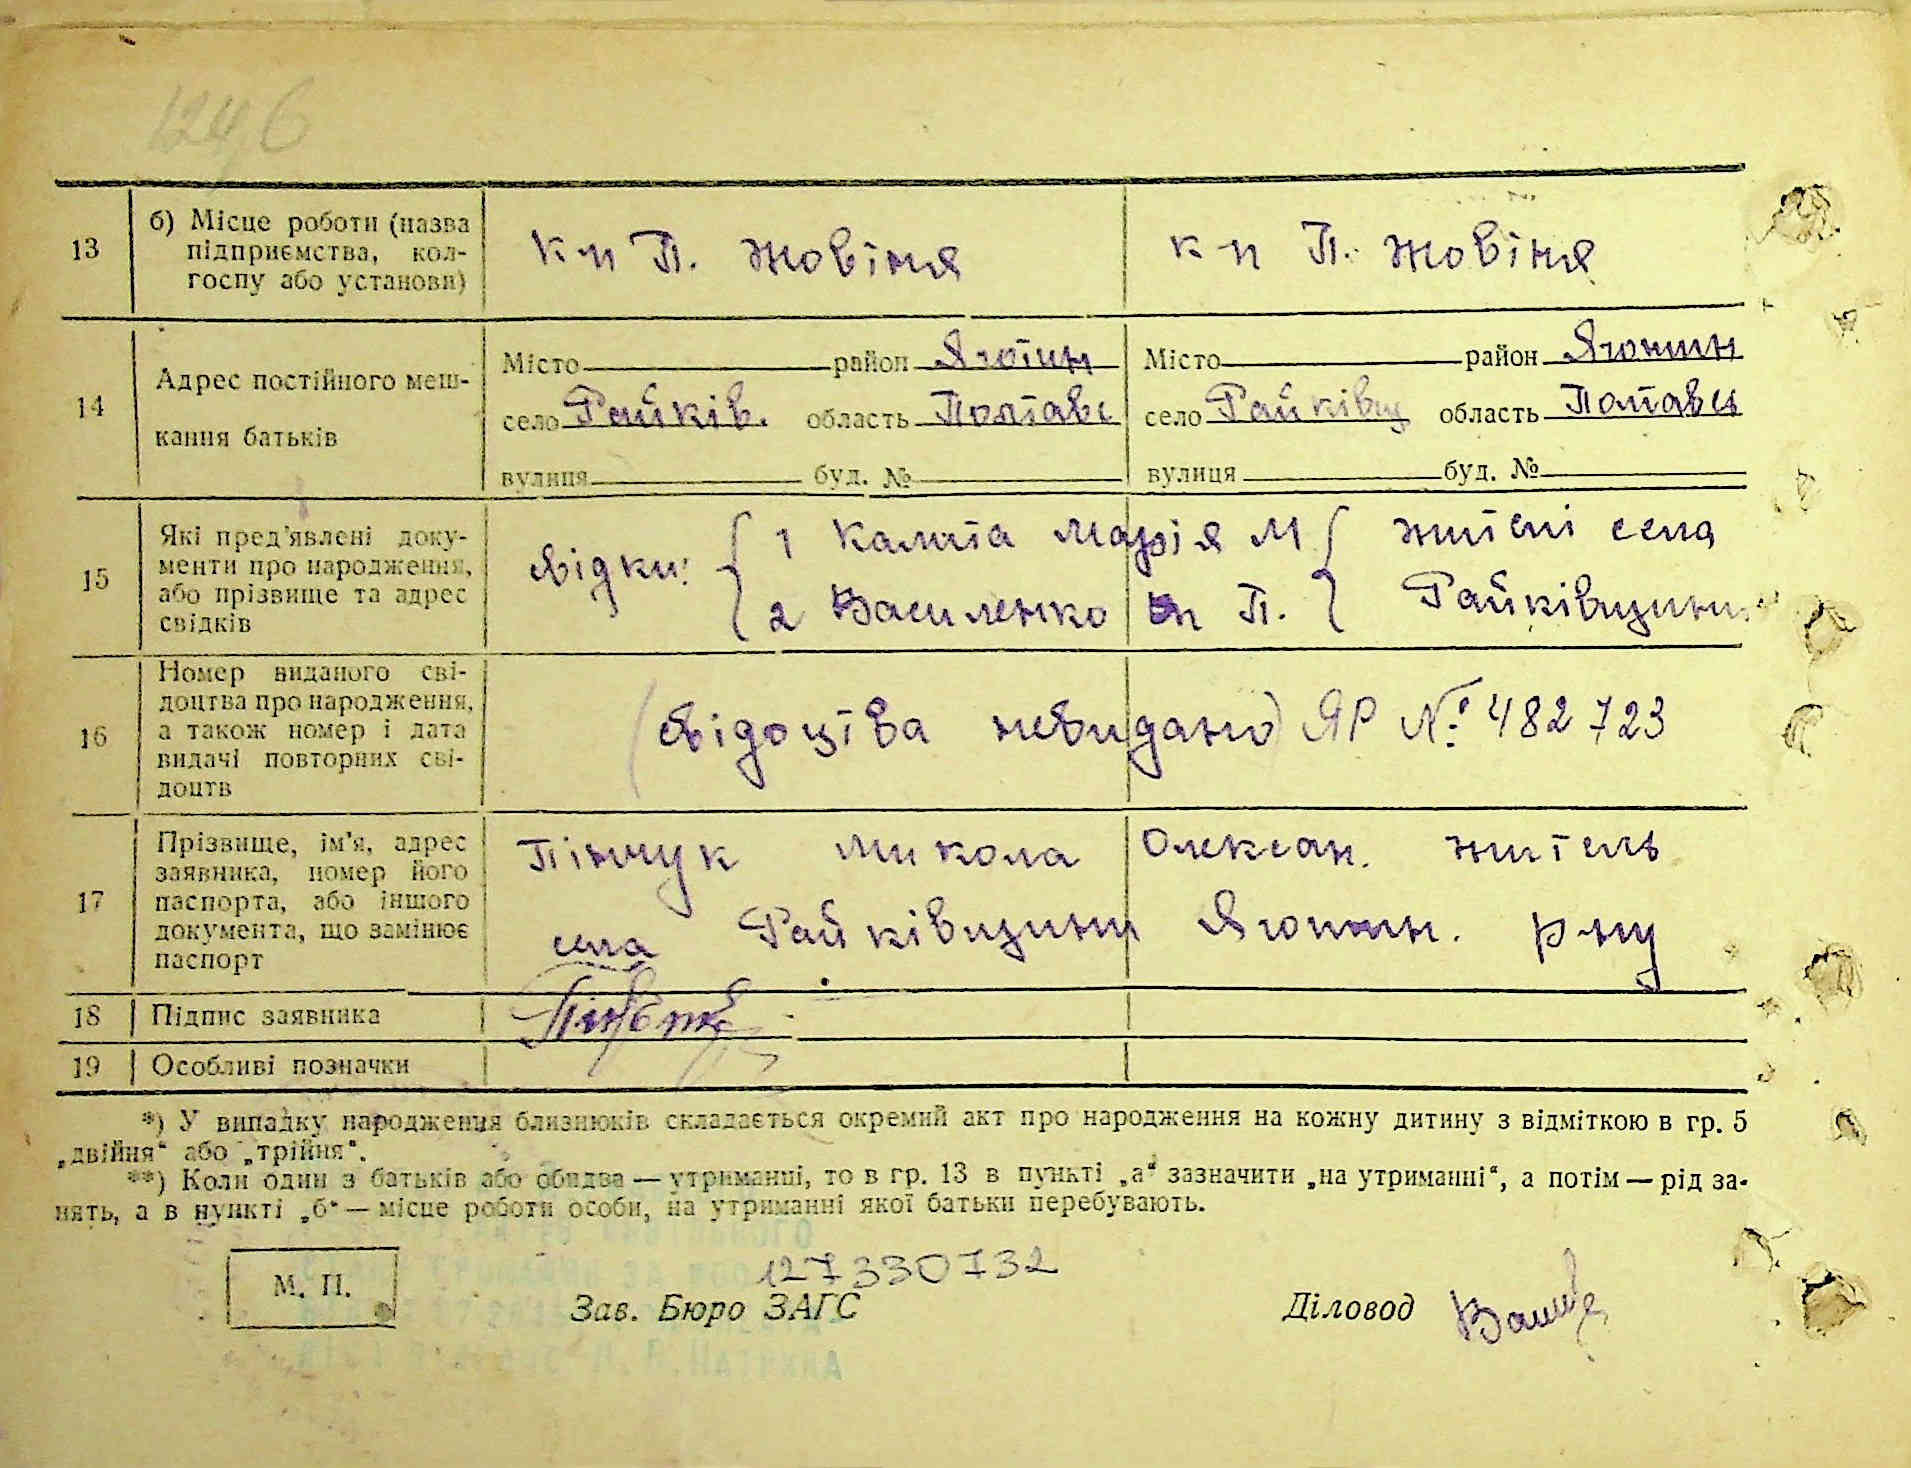 1246
13
б) Місце роботи (назва
підприємства, кол-
госпу або установи)
к-п П. Жовтня
к-п П. Жовтня
14
Адрес постійного меш-
кання батьків
Місто район Яготин
село Райків. область Полтавс
вулиця буд. №
Місто район Яготин
село Райківщ область Полтавс
вулиця буд. №
15
Які пред'явлені доку-
менти про народження,
або прізвище та адрес
свідків
свідки: 1 Калита Марія М жителі села
2 Василенко П. Райківщини
16
Номер виданого сві-
доцтва про народження,
а також номер і дата
видачі повторних сві-
доцтв
(свідоцтва невидано) ЯР № 482723
17
Прізвище, ім'я, адрес
заявника, номер його
паспорта, або іншого
документа, що замінює
паспорт
Пінчук Микола Олексан. житель
села Райківщини Яготин. р-ну
18
Підпис заявника
19
Особливі позначки
*) У випадку народження близнюків складається окремий акт про народження на кожну дитину з відміткою в гр. 5
„двійня“ або „трійня“.
**) Коли один з батьків або обидва — утриманці, то в гр. 13 в пункті „а“ зазначити „на утриманні“, а потім — рід за-
нять, а в пункті „б“ — місце роботи особи, на утриманні якої батьки перебувають.
М. П.
127330732
Зав. Бюро ЗАГС
Діловод